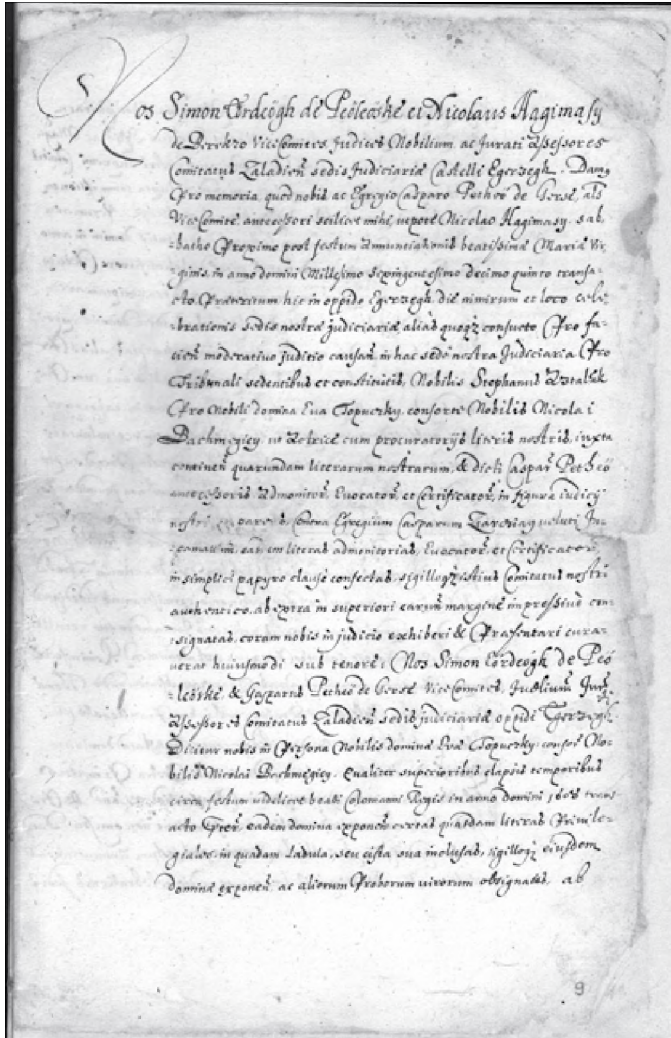 Nos Simon Ördeögh de Peöleöske et Nicolaus Hagimasy
de Berekzo ViceComites Judices Nobilium ac Jurati Assessores
Comitatus Zaladien̄ sedis Judiciariæ Castelli Egerzegh. Dam9
Pro memoria, quod nobis ac Egregio Casparo Petheö de Gerse, als
ViceComite antecessori scilicet mihi, utpote Nicolao Hagimasy, sab,
-batho Proximo post festum Annunciationis beatissimæ Mariæ Vir
ginis, in anno domini Millesimo Sexingentesimo decimo quinto transa-
cto Præteritum hic in oppido Egerzegh die nimirum et loco cele
brationis sedis nostræ judiciariæ aliàs quoqz consueto Pro fa-
cien̄ moderativo judicio causan̄ in hac sede nostra Judiciaria Pro
Tribunali sedentibus et constitutis, Nobilis Stephanus
Pro Nobili domina Eva Topuczky, consorte Nobilis Nicolai
Bachmegiey, ut Actrice cum procuratorijs literis nostris, iuxta
continen̄ quarundam literarum nostrarum, & dicti Caspar̄ Petheö
antecessoris Admonitor̄, Evocator̄ et Certificator̄, in figura iudicij
nostri, contra Egregium Casparum veluti In
literas admonitorias, Evocator̄ et Certificator̄
in simplici papyro clause confectas, sigilloqz istius Comitatus nostri
authentico, ab extra in superiori earum margine impressivè con
signatas, coram nobis in judicio exhiberi & Præsentari cura-
verat huiusmodi sub tenore; Nos Simon Eördeogh de Peö
leöske & Gasparus Petheö de Gerse ViceComites, Judlium̄ Jur̄
Assessores Comitatus Zaladien̄ sedis judiciariæ oppidi Egerzegh.
Dicitur nobis in Persona Nobilis dominæ Evæ Topuczky, consor̄ No-
bilis Nicolai Bachmegiey. Qualiter superioribus elapsis temporibus
circa festum videlicet beati Colomanni Regis in anno domini trans
acto eadem domina exponen̄ certas quasdam literas Privile-
giales, in quadam ladula, seu cista sua inclusas, sigilloqz eiusdem
dominæ exponen̄ ac aliorum Proborum virorum obsignatas, ab
9